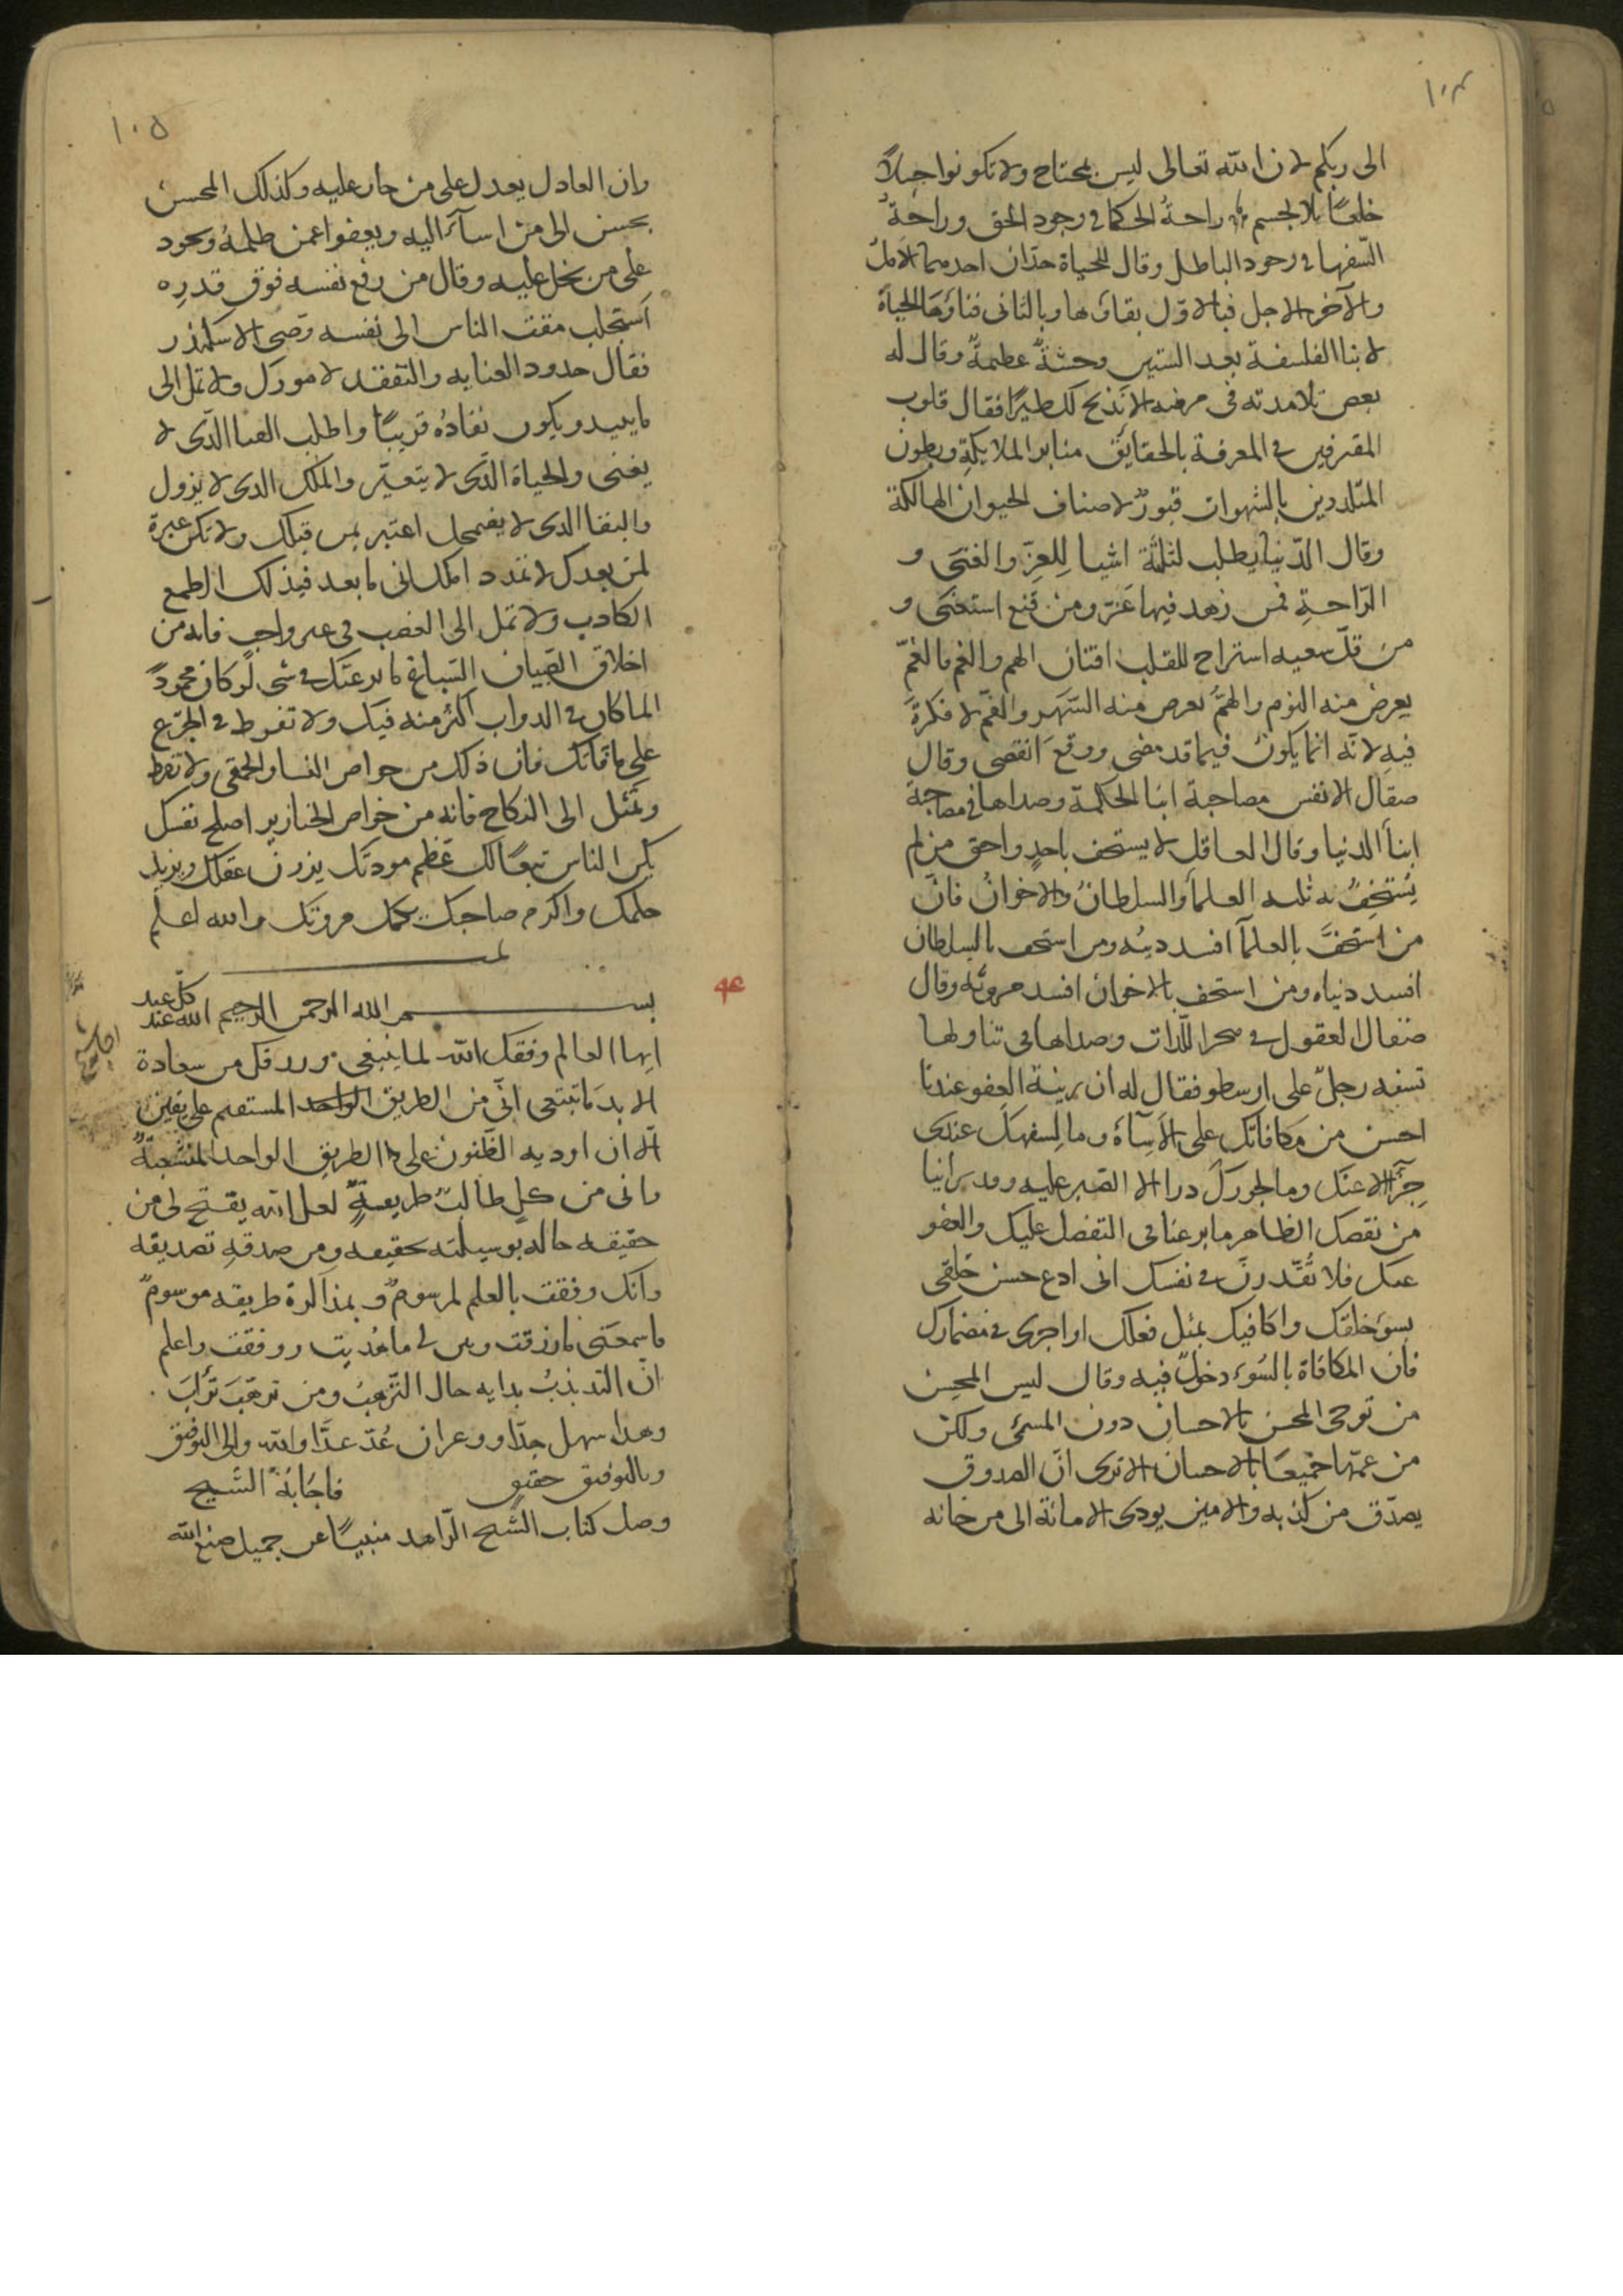 ١٠٤
الى ربكم لان الله تعالى ليس بمحتاج ولا تكونوا جبلاً
خلقًا بلا لجسم راحةُ الحكما في وجود الحق وراحةُ
السّفها في وجود الباطل وقال للحياة حدّان احدهما الاملُ
والآخر الاجل فبالاوّل بقاؤها وبالثانى فناؤها الحياة
لابنا الفلسفة بعد الستين وحشةٌ عظيمةٌ وقال له
بعض تلامذته فى مرضه الا نذبح لك طيرًا فقال قلوب
المقترفين في المعرفة بالحقايق منابر الملايكة وبطون
المتلذذين بالشهوات قبورٌ لاصناف الحيوان الهالكة
وقال الدّنيا يطلب لثلثة اشيا للعِزّ والغنى و
الرّاحةِ فمن زهد فيها عَزّ ومن قنع استغنى و
من قلّ سعيه استراح للقلب افتتان الهم والغم فالغمّ
يعرض منه النوم والهمّ يعرض منه السّهر والغمّ لا فكرةَ
فيهِ لانّه انما يكون فيما قد مضى ووقع انقضى وقال
صقال الانفس مصاحبة ابنا الحكمة وصداها في مصاحبة
ابنا الدنيا وقال العاقل لا يستخف باحدٍ واحق من لم
يُستخفُ به ثلثه العلمأ والسلطان والاخوان فان
من استخفَّ بالعلمآ افسد دينه ومن استخف بالسلطان
افسد دنياه ومن استخف بالاخوان افسد مروتّه وقال
صقال العقول في هجر اللّذات وصداها في تناولها
تسفه رجلٌ على ارسطو فقال له ان زينة العفو عندنا
احسن من مكافاتك على الاسآة وما لسفهك عندى
جزآ الا عنك وما لجورك دوا الا الصبر عليه وقد رانيا
من نقصك الظاهر ما يرغبنا فى التفضل عليك والعفو
عنك فلا تقدرنّ في نفسك انى ادع حسن خلقى
بسوء خلقك واكافيك بمثل فعلك او اجرى في مضمارك
فان المكافاة بالسّوء دخولٌ فيه وقال ليس المحسن
من توخى المحسن بالاحسان دون المسئ ولكن
من عمّهما جميعًا بالاحسان الا ترى انّ الصدوق
يصدّق من كذبه والامين يودى الامانة الى من خانه
١٠٥
وان العادل يعدل على من جار عليه وكذلك المحسن
يحسن الى من اسآء اليه ويعفوا عمن ظلمهُ ويجود
على من بخل عليه وقال من رفع نفسه فوق قدرِه
استجلب مقت الناس الى نفسه وصى الاسكندر
فقال حدود العنايه والتفقد لامورك ولا تمل الى
ما يبيد ويكون نفادُه قريبًا واطلب الغنا الّذى لا
يفنى والحياة الّذى لا يتغيّر والملك الذى لا يزول
والبقا الذى لا يضمحل اعتبر بمن قبلك ولا تكن عبرة
لمن بعدك لا تمدد املك الى ما بعد فبذلك الطمع
الكاذب ولا تمل الى الغضب فى غير واجب فانه من
اخلاق الصبيان السباع ما يرغبك في شى لو كان محمودًا
لما كان في الدواب اكثر منه فيك ولا تفرط في الجزع
على ما فاتك فان ذلك من خواص النسا والحمقى ولا تفرط
وتمل الى النكاح فانه من خواص الخنازير اصلح نفسك
يكن الناس تبعًا لك عظّم مودتك يزدن عقلك ويزيد
حلمك واكرم صاحبك يكمل مروتك والله اعلم
تمت
بسم الله الرحمن الرحيم
ايها العالم وفقك الله لما ينبغى ورزقك من سعادة
الابد ما تبتغى انّى من الطريق الواحد المستقيم على يقين
الا ان اوديه الظّنون على الطريق الواحد المنشعبة
وانى من كل طالبٍ طريقةٌ لعل الله يفتح لى من
حقيقه حاله بوسيلته تحقيقه ومن صدقه تصديقه
وانك وفقت بالعلم لمرسومٌ وبمذاكرة طريقه موسومٌ
فاسمعنى ما رزقت وبيّن لى ما هُديت ووفقت واعلم
انّ التذبذبُ بدايه حال الترهبُ ومن ترهّبَ تراَبَ
وهذا سهل جدّا ووعر ان عُدّ عدًّا والله ولى التوفيق
وبالتوفيق حقيق فاجابَهُ الشّيخ
وصل كتاب الشّيخ الزّاهد منبيًا عن جميل صنع الله